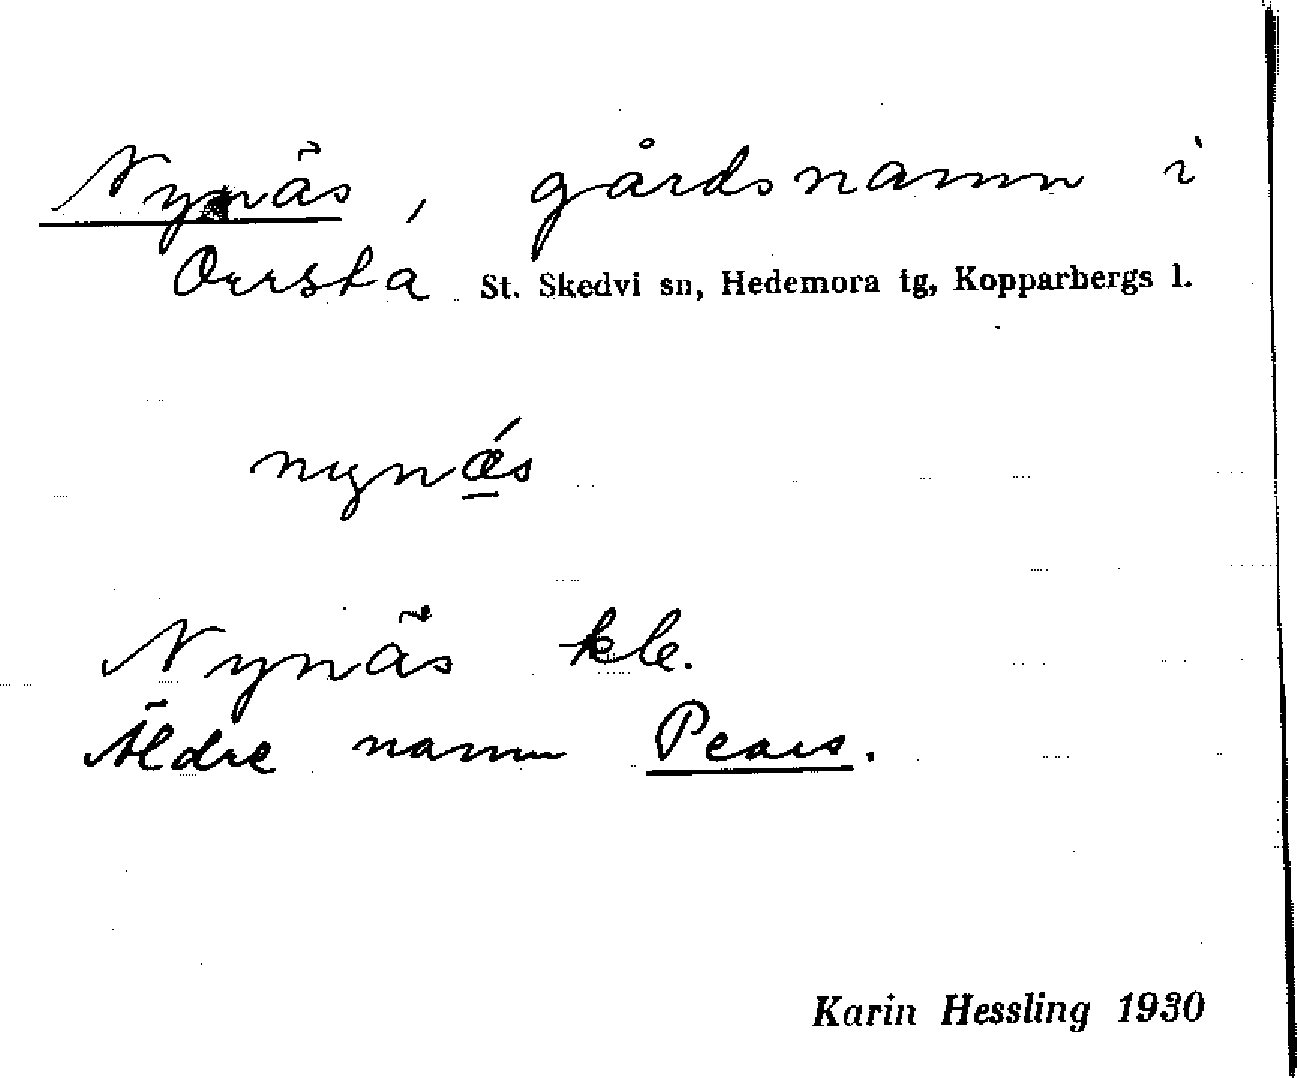 Nynäs, gårdsnamn i
Orrsta St. Skedvi sn, Hedemora tg, Kopparbergs l.
nynǽs
Nynäs kle.
Äldre namn Pears.
Karin Hessling 1930